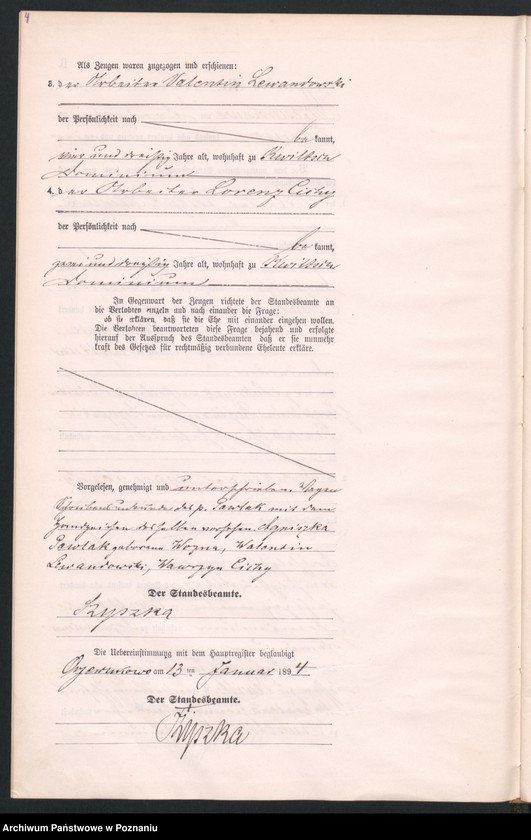 4
Als Zeugen waren zugezogen und erschienen:
3. der Arbeiter Valentin Lewandowski
der Persönlichkeit nach
be kannt,
vier und dreißig Jahre alt, wohnhaft zu Kwiltsch
Dominium
4. der Arbeiter Lorenz Cichy
der Persönlichkeit nach
be kannt,
zwei und dreißig Jahre alt, wohnhaft zu Kwiltsch
Dominium
In Gegenwart der Zeugen richtete der Standesbeamte an
die Verlobten einzeln und nach einander die Frage:
ob sie erklären, daß sie die Ehe mit einander eingehen wollen.
Die Verlobten beantworteten diese Frage bejahend und erfolgte
hierauf der Ausspruch des Standesbeamten, daß er sie nunmehr
kraft des Gesetzes für rechtmäßig verbundene Eheleute erkläre.
Vorgelesen, genehmigt und unterschrieben. Wegen
Schreibensunkunde des p. Pawlak mit dem
Handzeichen desselben versehen. Agnieszka
Pawlak geborene Wozna, Walentin
Lewandowski, Wawrzyn Cichy
Der Standesbeamte.
Kyszka
Die Uebereinstimmung mit dem Hauptregister beglaubigt
am 13 ten Januar 1894
Der Standesbeamte.
Kyszka
Archiwum Państwowe w Poznaniu